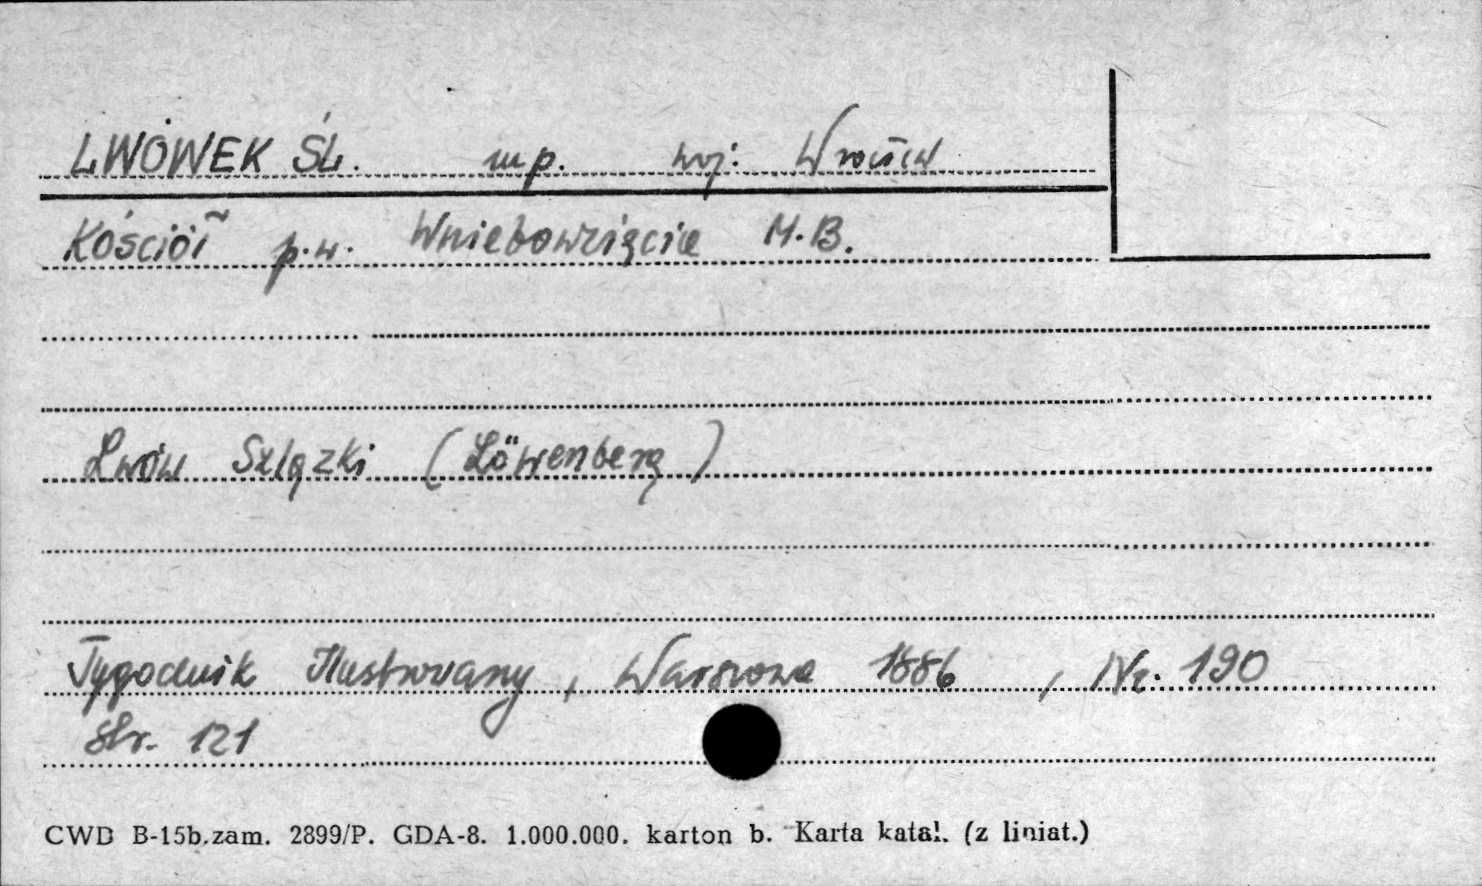 LWÓWEK ŚL. mp. woj: Wrocław
Kościół p.w. Wniebowzięcia M.B.
Lwów Szlązki (Löwenberg)
Tygodnik Ilustrowany, Warszawa 1886, Nr. 190
Str. 121
CWD B-15b.zam. 2899/P. GDA-8. 1.000.000. karton b. Karta katal. (z liniat.)